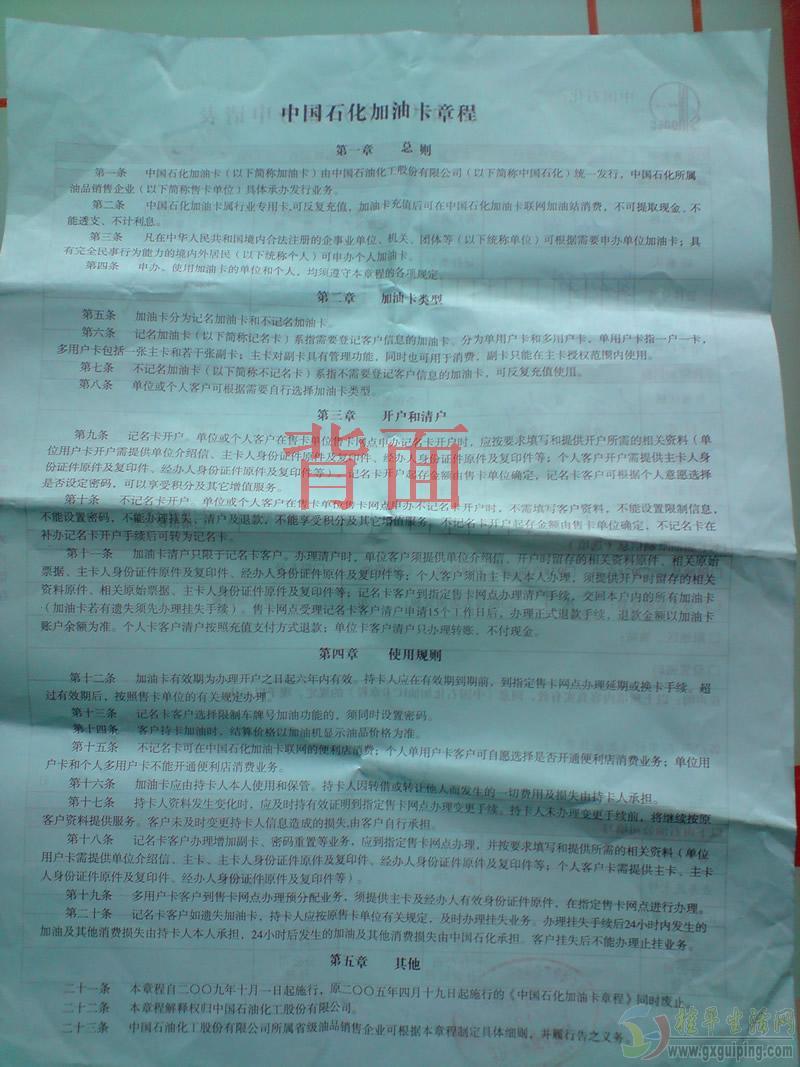 中国石化加油卡章程
第一章 总则
第一条 中国石化加油卡（以下简称加油卡）由中国石油化工股份有限公司（以下简称中国石化）统一发行，中国石化所属
油品销售企业（以下简称售卡单位）具体承办发行业务。
第二条 中国石化加油卡属行业专用卡,可反复充值，加油卡充值后可在中国石化加油卡联网加油站消费，不可提取现金、不
能透支、不计利息。
第三条 凡在中华人民共和国境内合法注册的企事业单位、机关、团体等（以下统称单位）可根据需要申办单位加油卡；具
有完全民事行为能力的境内外居民（以下统称个人）可申办个人加油卡。
第四条 申办、使用加油卡的单位和个人，均须遵守本章程的各项规定。
第二章 加油卡类型
第五条 加油卡分为记名加油卡和不记名加油卡。
第六条 记名加油卡（以下简称记名卡）系指需要登记客户信息的加油卡。分为单用户卡和多用户卡，单用户卡指一户一卡，
多用户卡包括一张主卡和若干张副卡；主卡对副卡具有管理功能，同时也可用于消费，副卡只能在主卡授权范围内使用。
第七条 不记名加油卡（以下简称不记名卡）系指不需要登记客户信息的加油卡，可反复充值使用。
第八条 单位或个人客户可根据需要自行选择加油卡类型。
第三章 开户和清户
第九条 记名卡开户。单位或个人客户在售卡单位售卡网点申办记名卡开户时，应按要求填写和提供开户所需的相关资料（单
位用户卡开户需提供单位介绍信、主卡人身份证件原件及复印件、经办人身份证件原件及复印件等；个人客户开户需提供主卡人身
份证件原件及复印件、经办人身份证件原件及复印件等）。记名卡开户起存金额由售卡单位确定，记名卡客户可根据个人意愿选择
是否设定密码，可以享受积分及其它增值服务。
第十条 不记名卡开户。单位或个人客户在售卡单位售卡网点申办不记名卡开户时，不需填写客户资料，不能设置限制信息，
不能设置密码，不能办理挂失、清户及退款，不能享受积分及其它增值服务。不记名卡开户起存金额由售卡单位确定，不记名卡在
补办记名卡开户手续后可转为记名卡。
第十一条 加油卡清户只限于记名卡客户。办理清户时，单位客户须提供单位介绍信、开户时留存的相关资料原件、相关原始
票据、主卡人身份证件原件及复印件、经办人身份证件原件及复印件等；个人客户须由主卡人本人办理，须提供开户时留存的相关
资料原件、相关原始票据、主卡人身份证件原件及复印件等；记名卡客户到指定售卡网点办理清户手续，交回本户内的所有加油卡
（加油卡若有遗失须先办理挂失手续）。售卡网点受理记名卡客户清户申请15个工作日后，办理正式退款手续，退款金额以加油卡
账户余额为准。个人卡客户清户按照充值支付方式退款；单位卡客户清户只办理转账，不付现金。
第四章 使用规则
第十二条 加油卡有效期为办理开户之日起六年内有效。持卡人应在有效期到期前，到指定售卡网点办理延期或换卡手续。超
过有效期后，按照售卡单位的有关规定办理。
第十三条 记名卡客户选择限制车牌号加油功能的，须同时设置密码。
第十四条 客户持卡加油时，结算价格以加油机显示油品价格为准。
第十五条 不记名卡可在中国石化加油卡联网的便利店消费；个人单用户卡客户可自愿选择是否开通便利店消费业务；单位用
户卡和个人多用户卡不能开通便利店消费业务。
第十六条 加油卡应由持卡人本人使用和保管。持卡人因转借或转让他人而发生的一切费用及损失由持卡人承担。
第十七条 持卡人资料发生变化时，应及时持有效证明到指定售卡网点办理变更手续。持卡人未办理变更手续前，将继续按原
客户资料提供服务。客户未及时变更持卡人信息造成的损失,由客户自行承担。
第十八条 记名卡客户办理增加副卡、密码重置等业务，应到指定售卡网点办理，并按要求填写和提供所需的相关资料（单位
用户卡需提供单位介绍信、主卡、主卡人身份证件原件及复印件、经办人身份证件原件及复印件等；个人客户卡需提供主卡、主卡
人身份证件原件及复印件、经办人身份证件原件及复印件等）。
第十九条 多用户卡客户到售卡网点办理预分配业务，须提供主卡及经办人有效身份证件原件，在指定售卡网点进行办理。
第二十条 记名卡客户如遗失加油卡，持卡人应按原售卡单位有关规定，及时办理挂失业务。办理挂失手续后24小时内发生的
加油及其他消费损失由持卡人本人承担，24小时后发生的加油及其他消费损失由中国石化承担。客户挂失后不能办理止挂业务。
第五章 其他
二十一条 本章程自二〇〇九年十月一日起施行，原二〇〇五年四月十九日起施行的《中国石化加油卡章程》同时废止。
二十二条 本章程解释权归中国石油化工股份有限公司。
二十三条 中国石油化工股份有限公司所属省级油品销售企业可根据本章程制定具体细则，并履行告之义务。
背面
桂平生活网
www.gxguiping.com